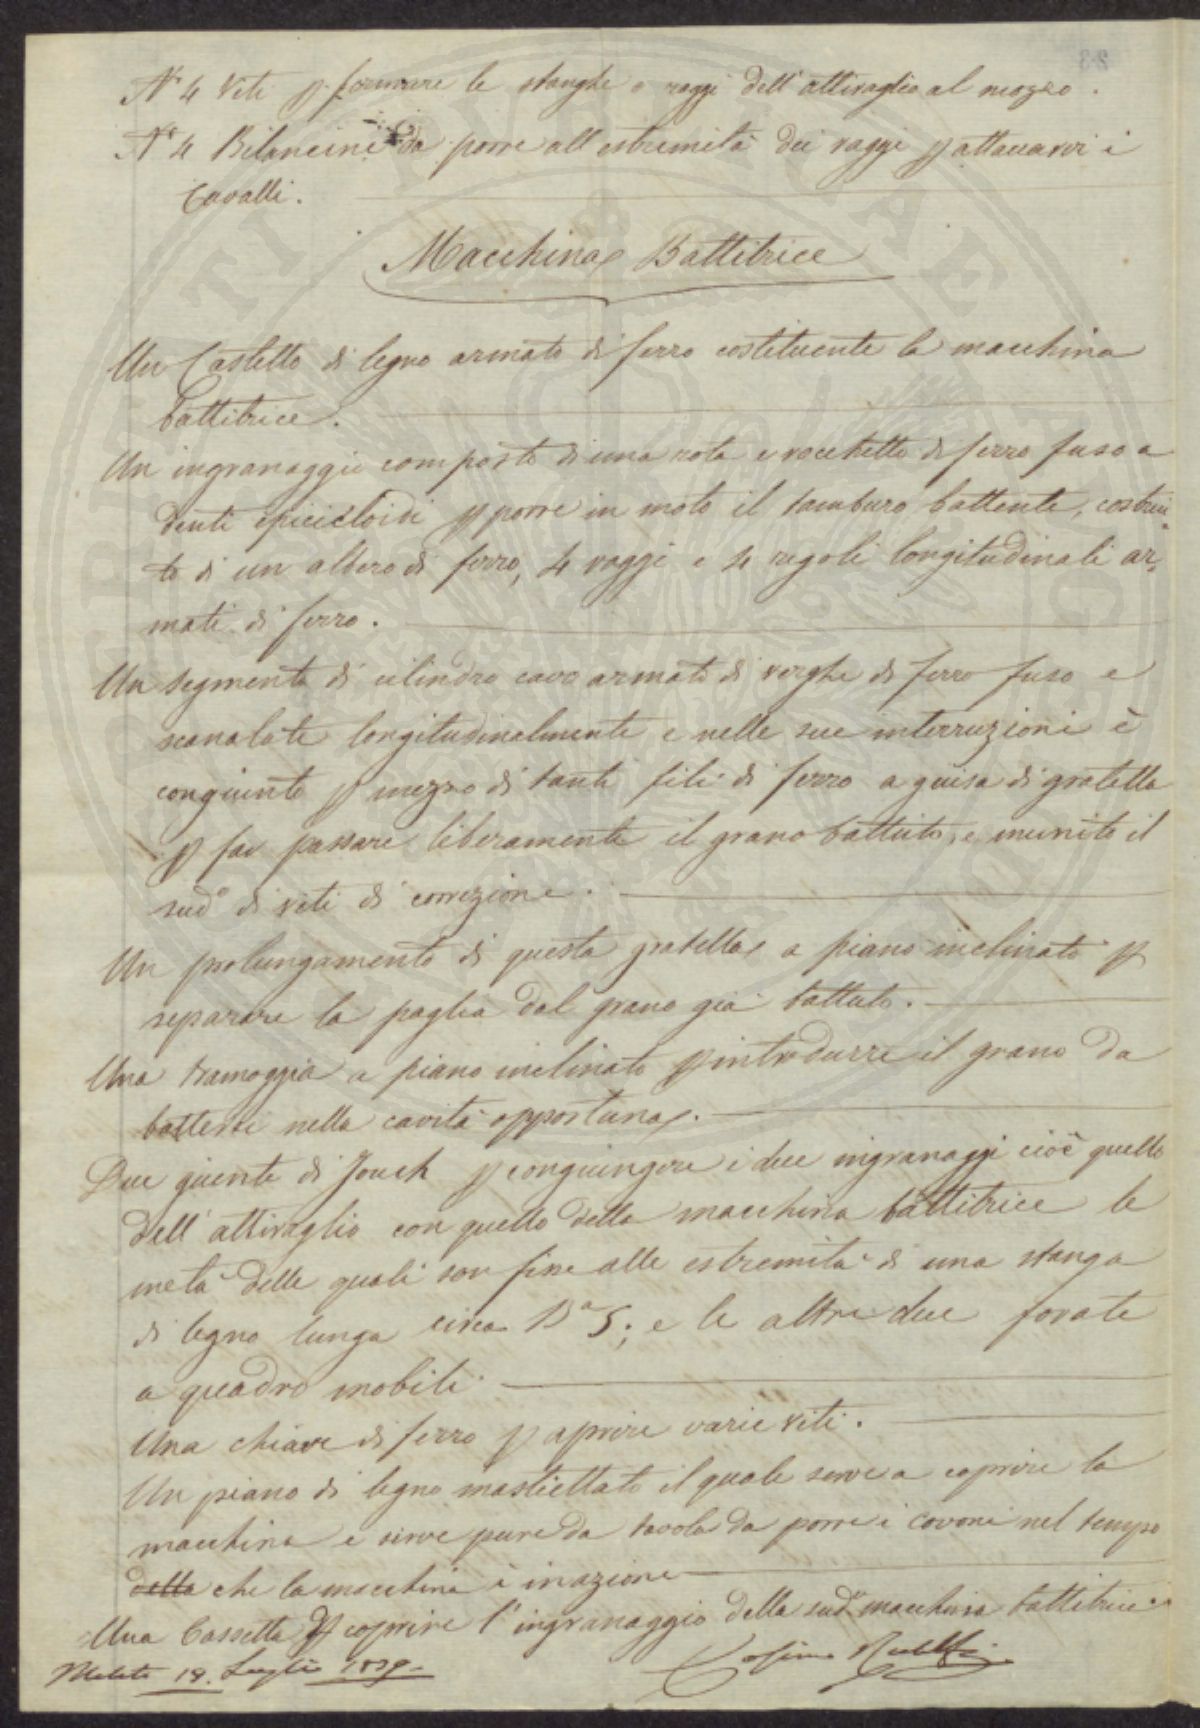 N.° 4 Viti p. fermare le stanghe o raggi dell'attiraglio al mozzo.
N.° 4 Bilancini da porre all'estremità dei raggi p attaccarvi i
Cavalli.
Macchina Battitrice
Un Castello di legno armato di ferro costituente la macchina
battitrice.
Un ingranaggio composto di una rota e rocchetto di ferro fuso a
denti epicicloidi p porre in moto il tamburo battente, costrui-
to di un albero di ferro, 4 raggi e 4 regoli longitudinali ar-
mati di ferro.
Un segmento di cilindro cavo armato di verghe di ferro fuso e
scanalate longitudinalmente e nelle sue interruzioni è
congiunto p mezzo di tanti fili di ferro a guisa di gratella
p far passare liberamente il grano battuto, e munito il
sud.° di viti di correzione.
Un prolungamento di questa gratella a piano inclinato p
separare la paglia dal grano già battuto.
Una tramoggia a piano inclinato p introdurre il grano da
battersi nella cavità opportuna.
Due giunte di Jouch p congiungere i due ingranaggi cioè quello
dell'attiraglio con quello della macchina battitrice le
metà delle quali son fisse alle estremità di una stanga
di legno lunga circa B.a 5; e le altre due forate
a quadro mobili.
Una chiave di ferro p aprire varie viti.
Un piano di legno mastiettato il quale serve a coprire la
macchina e serve pure da tavola da porre i covoni nel tempo
della che la macchina è in azione
Una Cassetta p coprire l'ingranaggio della sud.a macchina battitrice
Meleto 18. Luglio 1839.
Cosimo